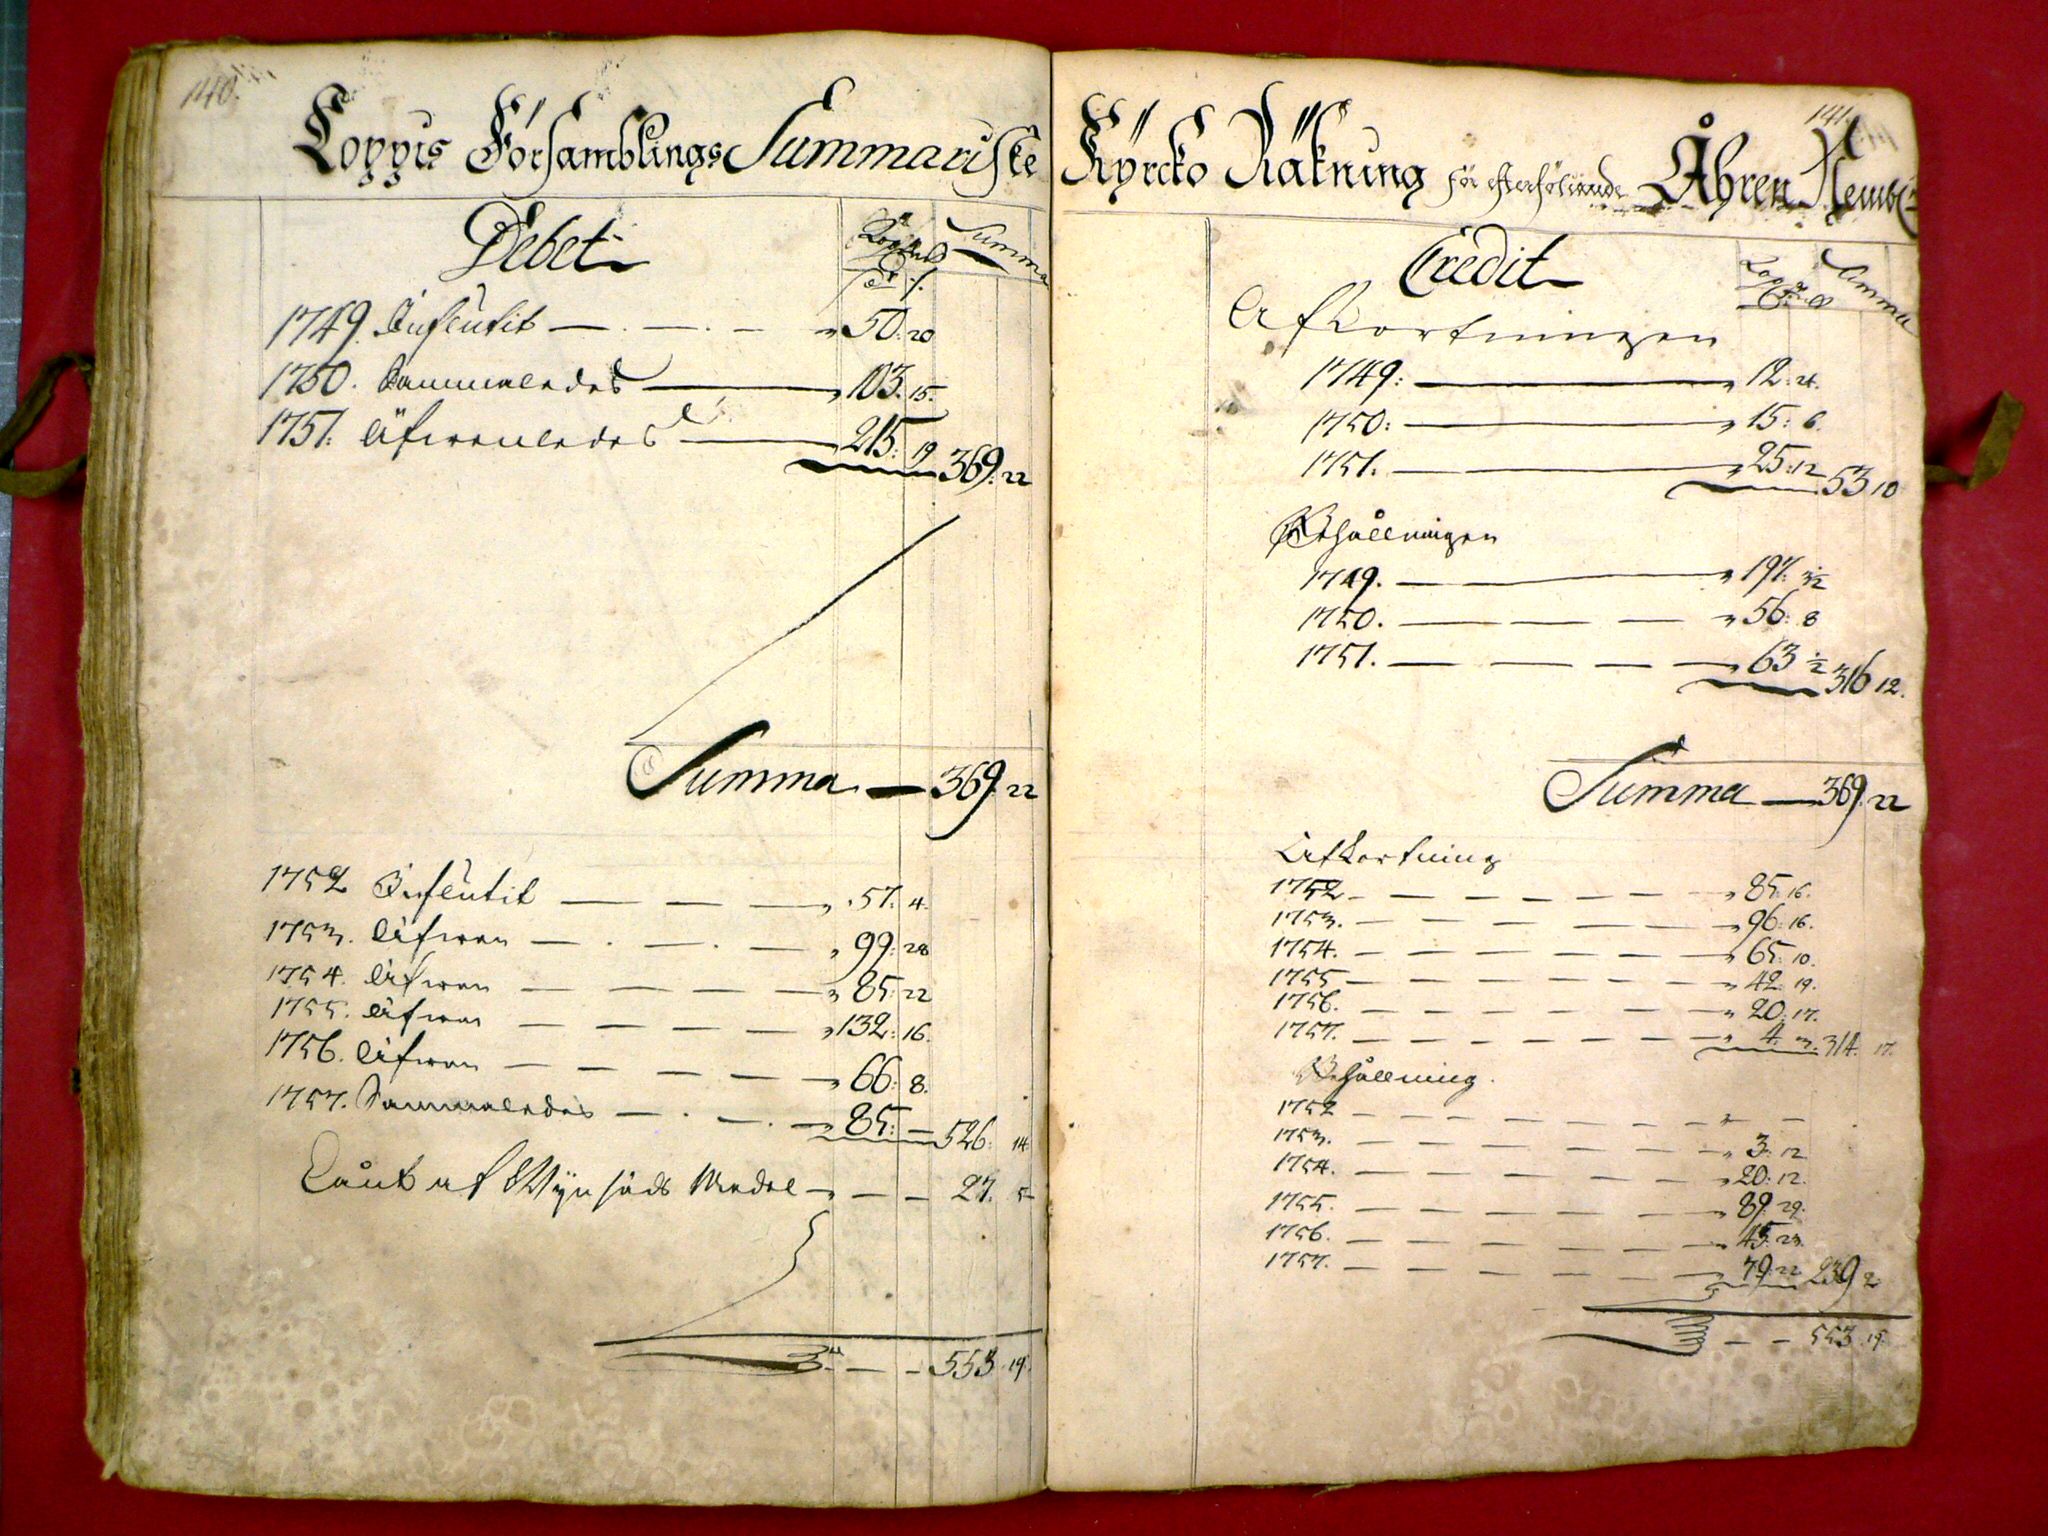 140.
Loppis Församblings Summariske
Debet
Summa
1749. Influtit 50: 20
1750. Sammaledes 103. 15.
1751. Äfwenledes 215: 19 369: 22
Summa 369: 22
1752 Influtit 57: 4.
1753. Äfwen 99: 28
1754. Äfwen 85: 22
1755. Äfwen 132: 16.
1756. Äfwen 66: 8.
1757. Sammaledes 85: — 526: 14
Lånt af Medel 27: 5
553. 19.
141.
Kyrcko Räkning för efterföljande Åhren Nembl:
Credit
Summa
Afkortningen
1749: 12: 24.
1750: 15: 6.
1751. 25: 12 53 10
Behållningen
1749. 197:
1750. 56: 8
1751. 63 316 12.
Summa 369: 22
Afkortning
1752 85: 16.
1753. 96: 16.
1754. 65: 10.
1755 42: 19.
1756. 20: 17.
1757. 4. 3. 314. 17.
Behållning.
1752 — —
1753. 3: 12
1754. 20: 12.
1755. 89: 29.
1756. 45: 23.
1757. 79: 22 239 2
553. 19.